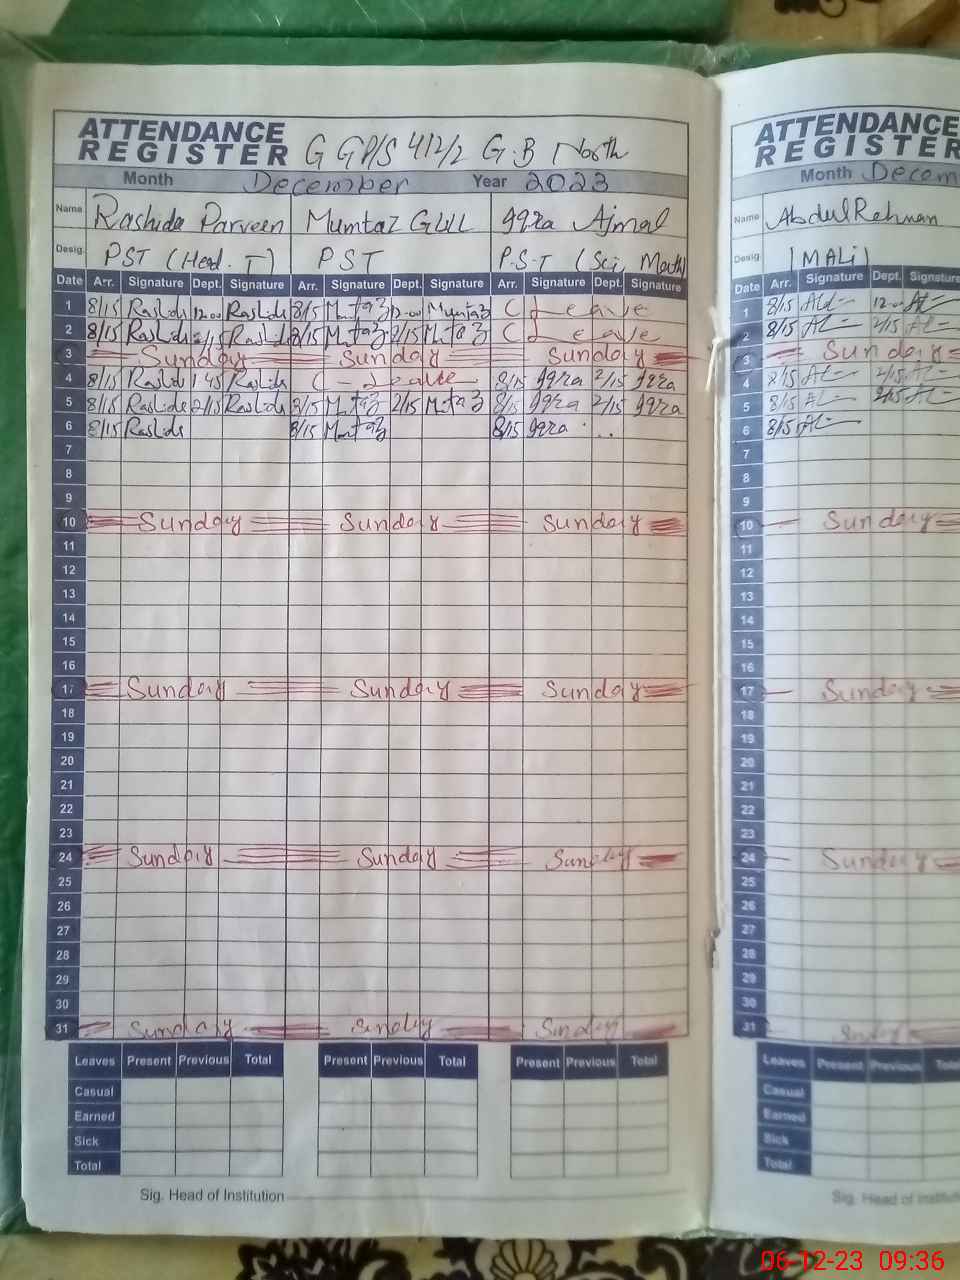 ATTENDANCE
REGISTER G GP/S 412/2 G.B North
Month December Year 2023
Name Rashida Parveen Mumtaz Gull Iqra Ajmal
Desig. PST (Head. T) PST P.S.T (Sci, Math)
Date Arr. Signature Dept. Signature Arr. Signature Dept. Signature Arr. Signature Dept. Signature
1 8/15 Rashida 12.00 Rashida 8/15 Mumtaz 12.00 Mumtaz C Leave
2 8/15 Rashida 2/15 Rashida 8/15 Mumtaz 2/15 Mumtaz C Leave
3 Sunday Sunday Sunday
4 8/15 Rashida 1 45 Rashida C - Leave 8/15 Iqra 2/15 Iqra
5 8/15 Rashida 2/15 Rashida 8/15 Mumtaz 2/15 Mumtaz 8/15 Iqra 2/15 Iqra
6 8/15 Rashida 8/15 Mumtaz 8/15 Iqra
7
8
9
10 Sunday Sunday Sunday
11
12
13
14
15
16
17 Sunday Sunday Sunday
18
19
20
21
22
23
24 Sunday Sunday Sunday
25
26
27
28
29
30
31 Sunday Sunday Sunday
Leaves Present Previous Total Present Previous Total Present Previous Total
Casual
Earned
Sick
Total
Sig. Head of Institution
ATTENDANCE
REGISTER
Month Decem
Name Abdul Rehman
Desig. (MALi)
Arr. Signature Dept. Signature
1 8/15 12.00
2 8/15 2/15
3 Sunday
4 8/15 2/15
5 8/15 2/15
6 8/15
7
8
9
10 Sunday
11
12
13
14
15
16
17 Sunday
18
19
20
21
22
23
24 Sunday
25
26
27
28
29
30
31 Sunday
Leaves Present Previous Total
Casual
Earned
Sick
Total
Sig. Head of Institution
06-12-23 09:36